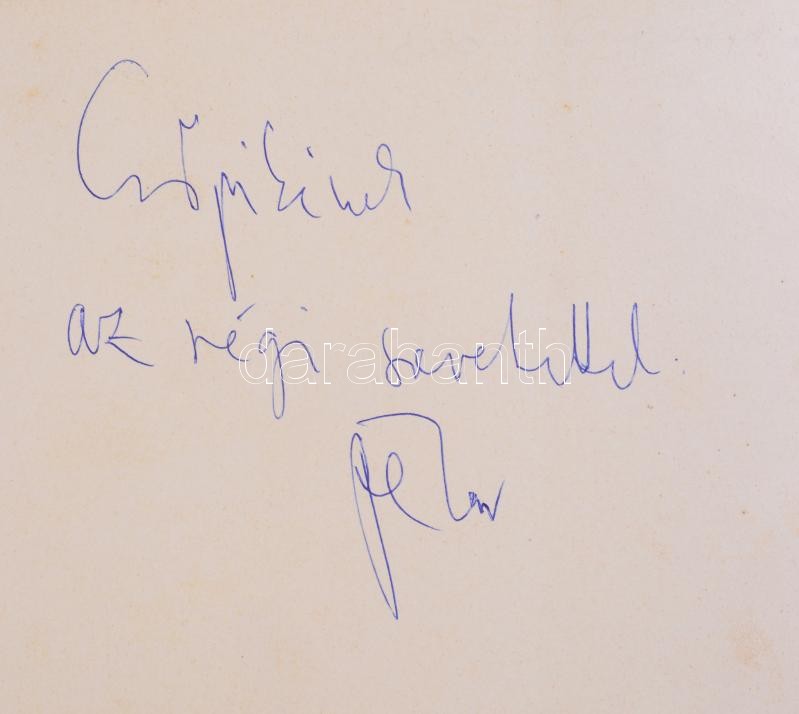 Csöpikének
az régi szeretettel.
Péter
darabanth